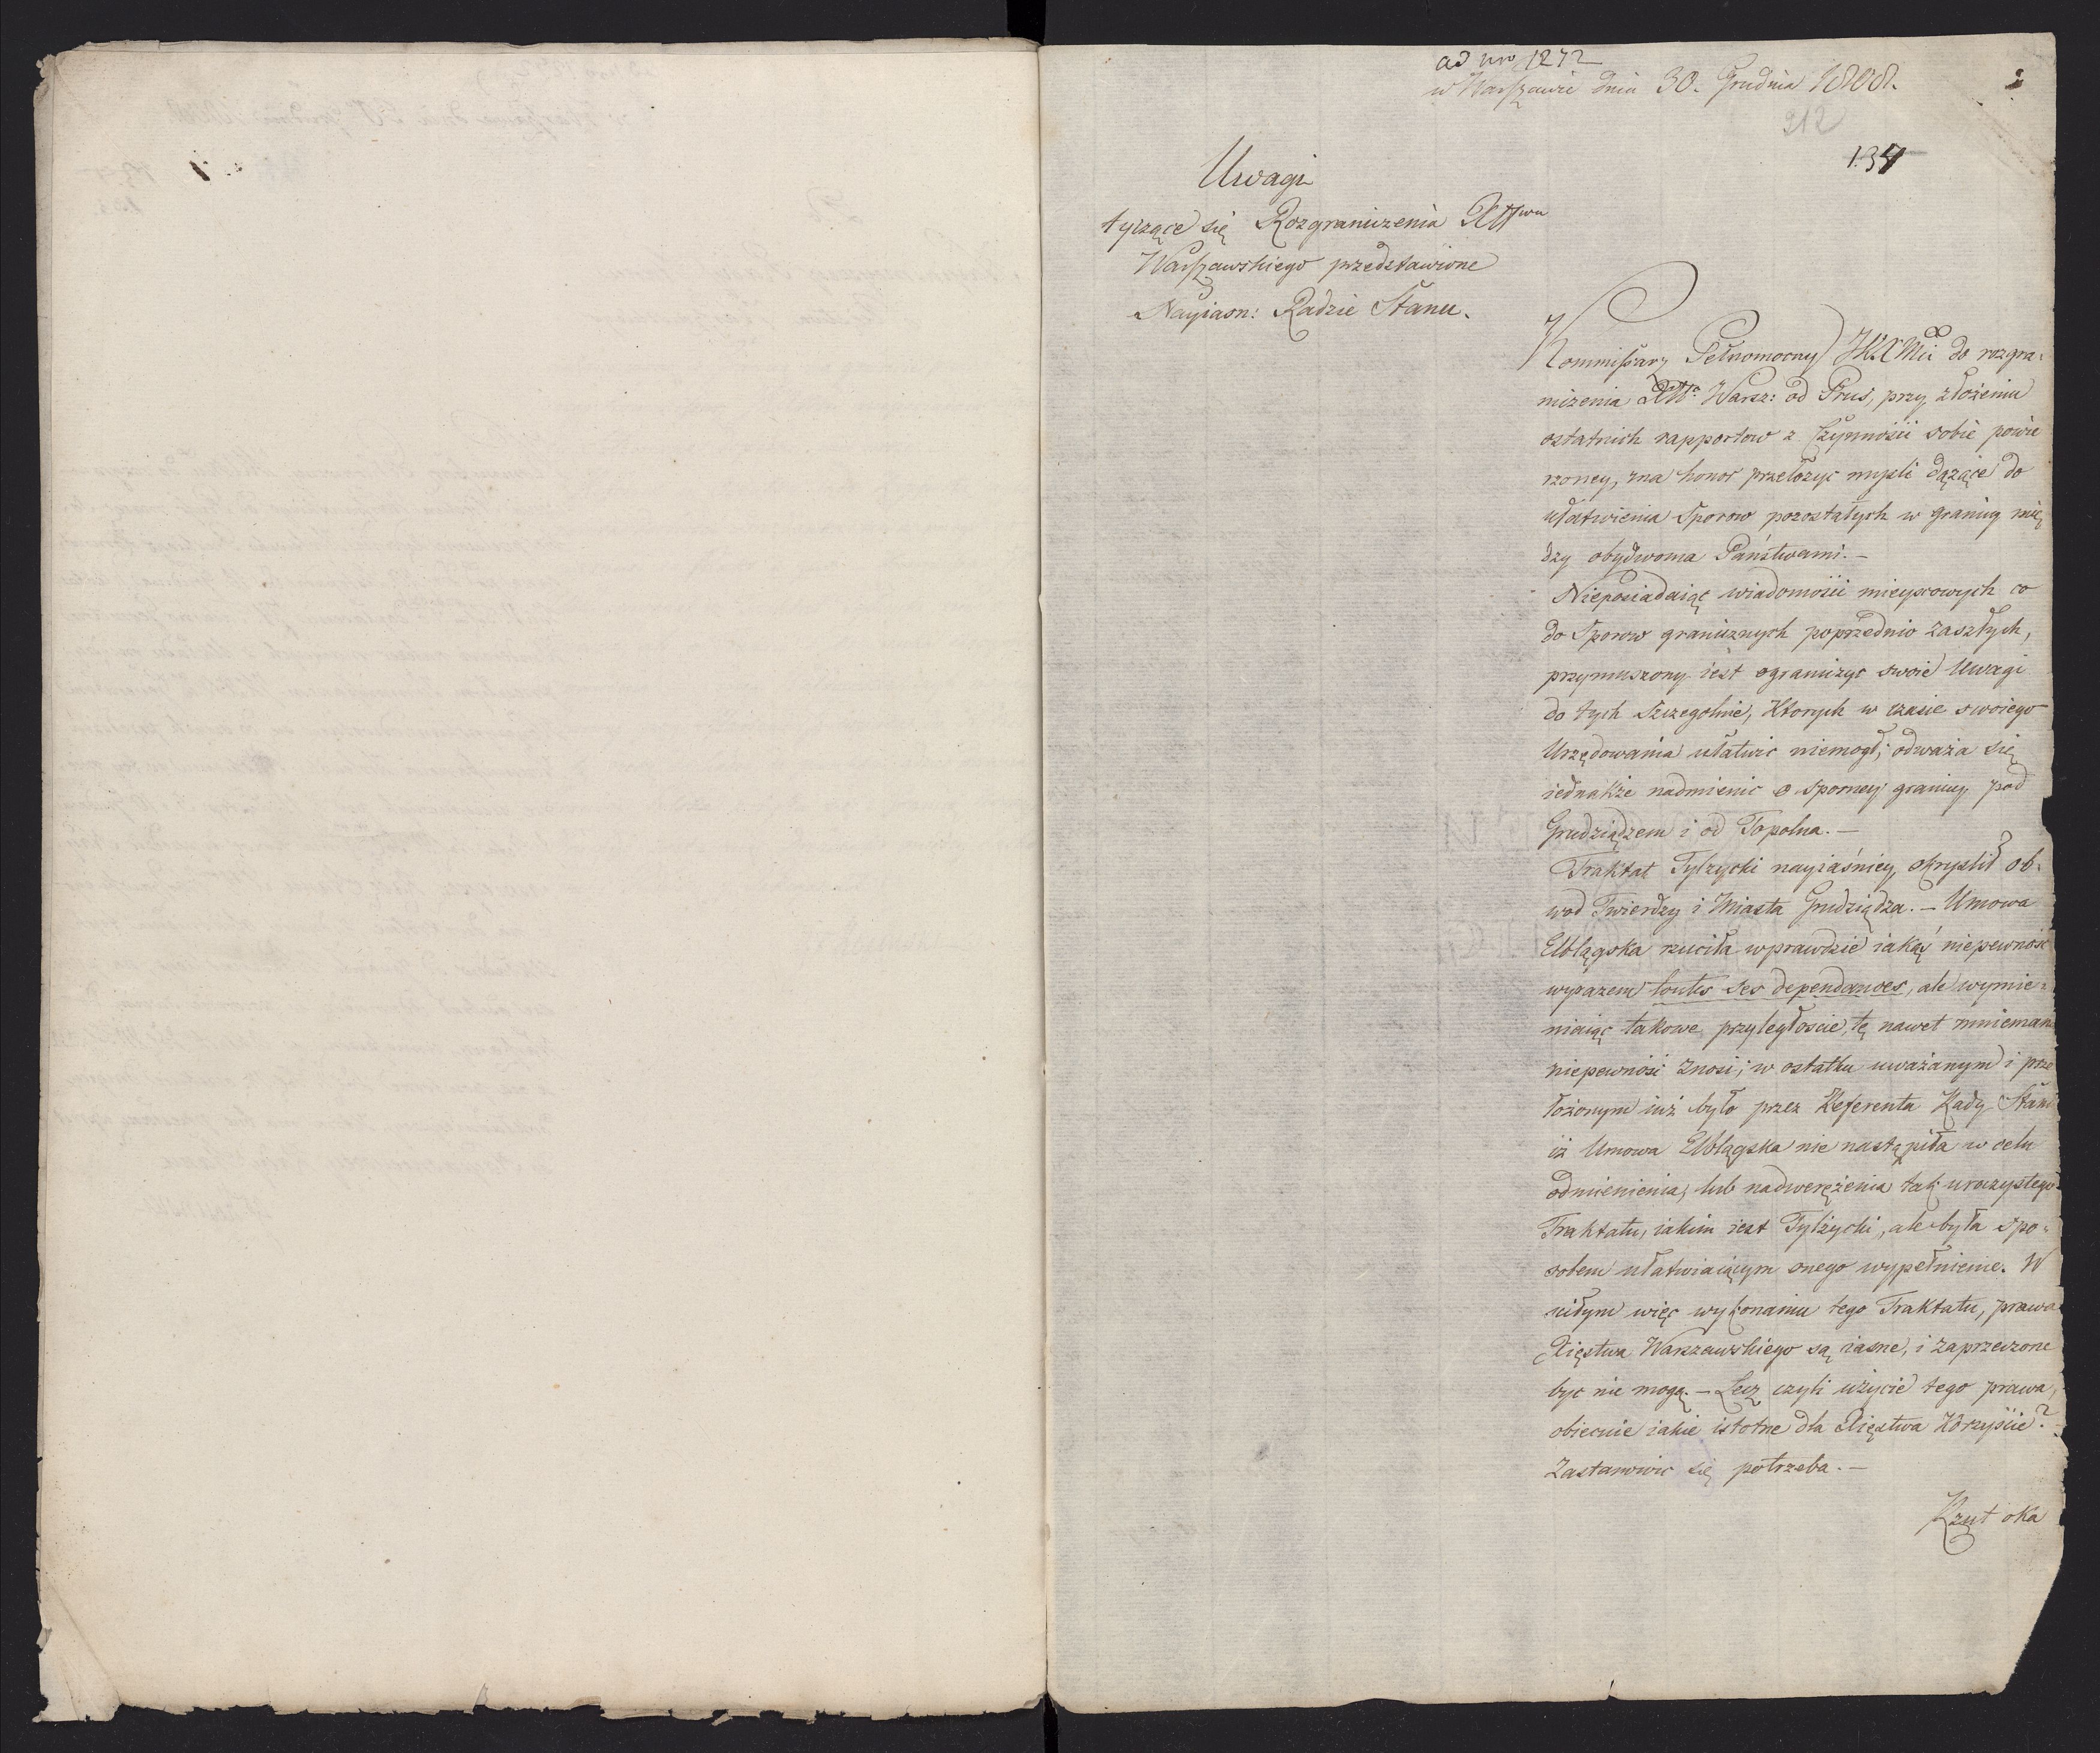 ad nro 1272
w Warszawie dnia 30. Grudnia 1808.
212
134
Uwagi
tyczące się Rozgraniczenia Xttwa
Warszawskiego przedstawione
Nayiasn: Radzie Stanu.
Kommissarz Pełnomocny JKXMci do rozgra:
niczenia Xttwa Warsz: od Prus, przy złożeniu
ostatnich rapportow z Czynności sobie powie
rzoney, ma honor przełożyc mysli dążące do
ułatwienia Sporow pozostałych w granicy mię
dzy obydwoma Państwami. —
Nieposiadaiąc wiadomości mieyscowych co
do Sporow granicznych poprzednio zaszłych,
przymuszony iest ograniczyc swoie Uwagi
do tych Szczegolnie, Ktorych w czasie swoiego
Urzędowania ułatwic niemogł; odważa się
iednakże nadmienic o sporney granicy pod
Grudziądzem i od Topolna. —
Traktat Tylzycki nayiaśniey, okryslił ob:
wod Twierdzy i Miasta Grudziądza. — Umowa
Elblągska rzuciła wprawdzie iakąś niepewność
wyrazem toutes ses dependances, ale wymie:
niaiąc takowe przyległoscie, tę nawet mnieman
niepewność znosi; w ostatku uważanym i prze
łożonym iuż było przez Referenta Rady Stanu
iż Umowa Elblągska nie nastąpiła w celu
odmienienia, lub nadwerężenia tak uroczystego
Traktatu, iakim iest Tylżycki, ale była spo:
sobem ułatwiaiącym onego wypełnienie. W
ścisłym więc wykonaniu tego Traktatu, prawa
Xięstwa Warszawskiego są iasne, i zaprzeczone
byc nie mogą. — Lecz czyli użycie tego prawa,
obiecuie iakie istotne dla Xięstwa Korzyście?
Zastanowic się potrzeba. —
Rzut oka